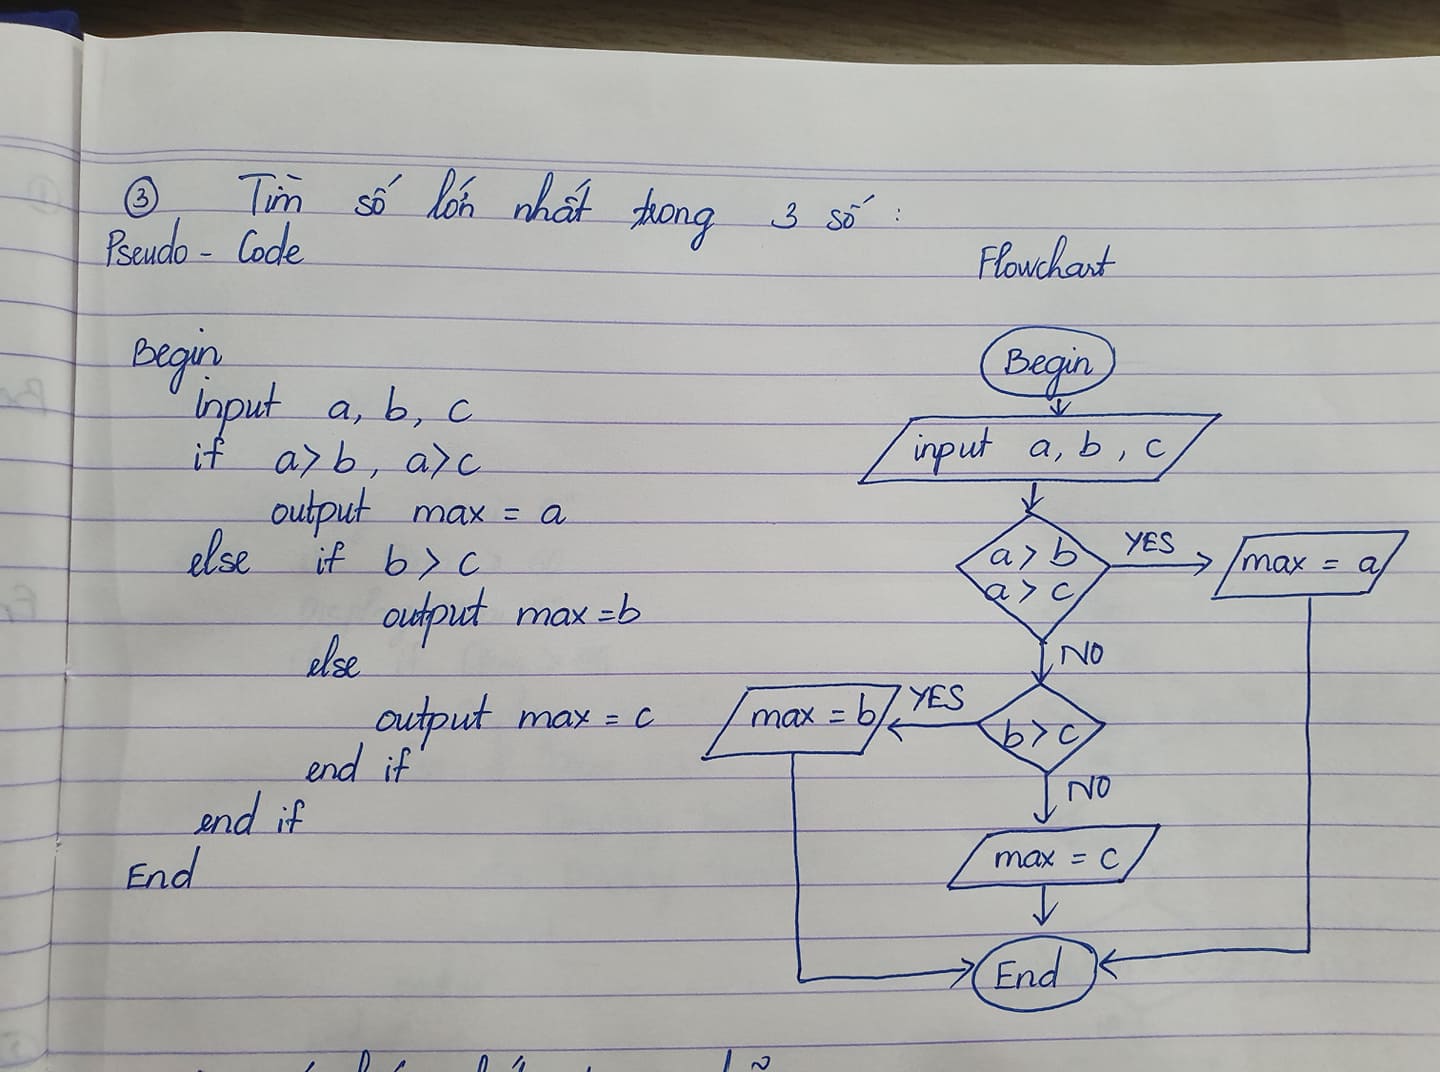 ③ Tìm số lớn nhất trong 3 số :
Pseudo - Code
Flowchart
Begin
input a, b, c
if a>b, a>c
output max = a
else if b > c
output max =b
else
output max = c
end if
end if
End
Begin
input a, b, c
a > b
a > c
YES
max = a
NO
b > c
YES
max = b
NO
max = c
End